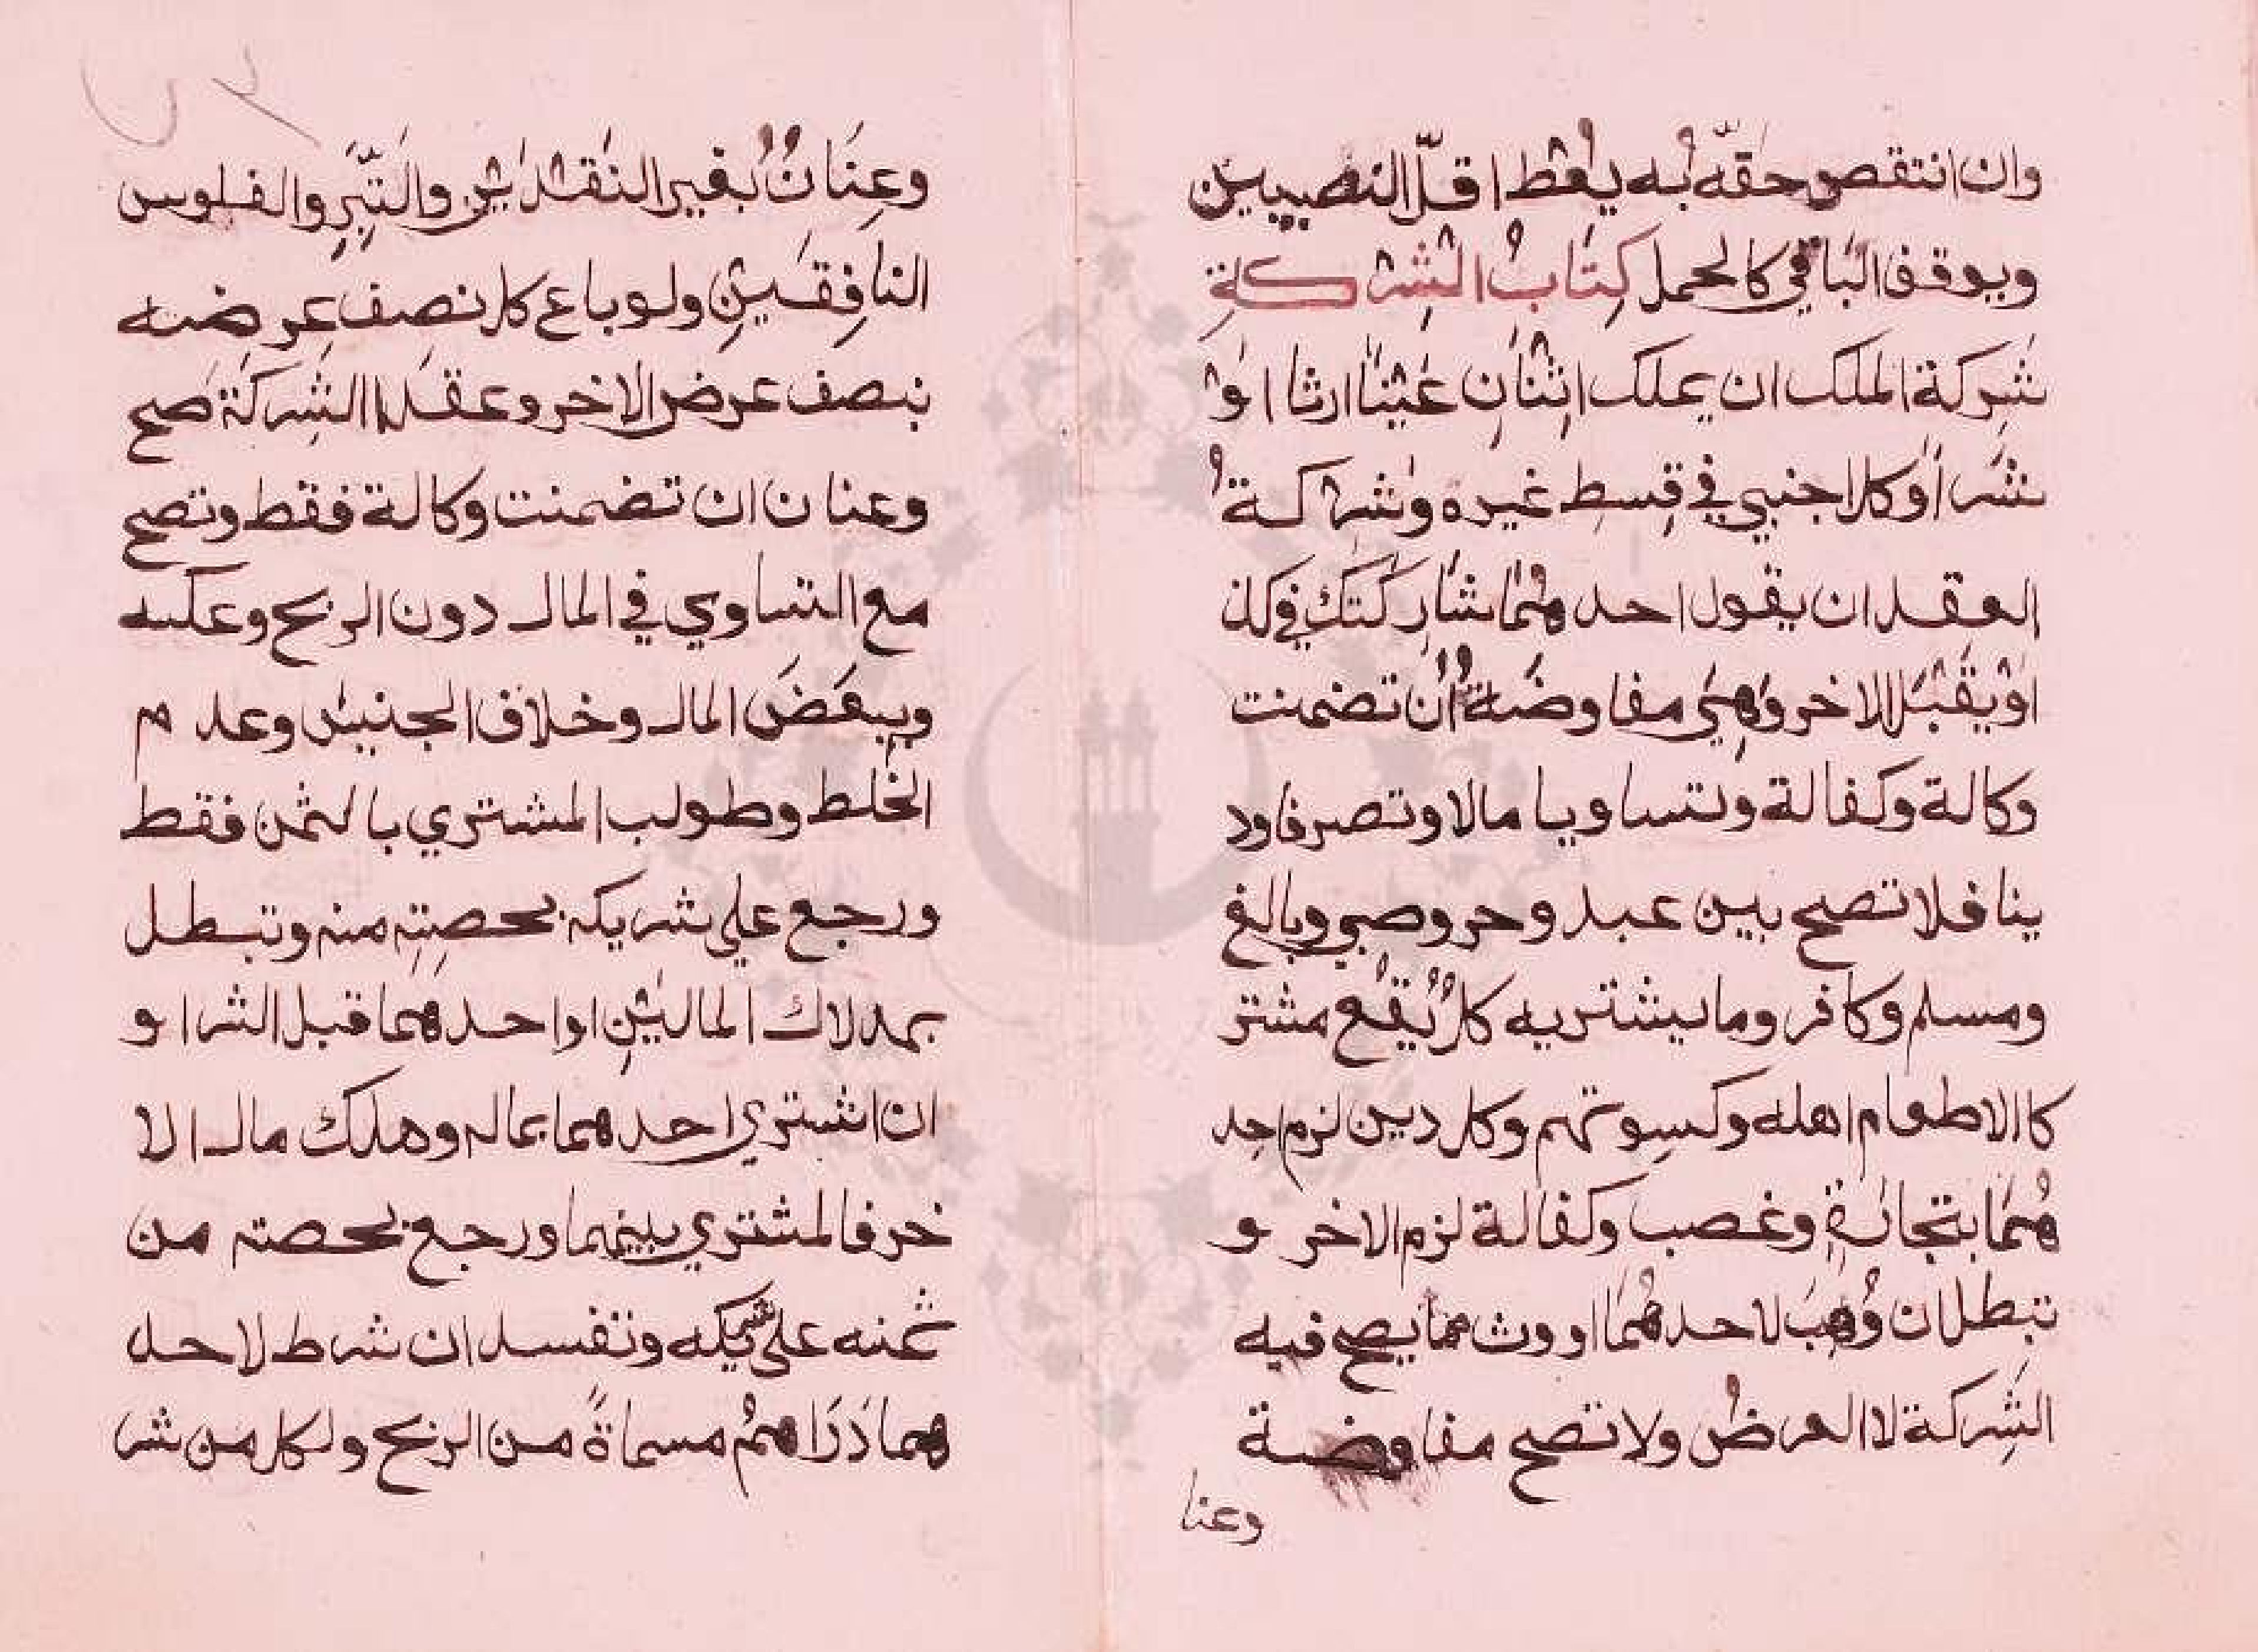 وان انتقص حقّه به يعْط اقلّ النصيبين
ويوقف البَاقي كالحمل كِتَابُ الشِرْكةِ
شِركة الملك ان يملك اثنَانِ عَيْنًا ارثا اوْ
شَراً وكل اجنبي في قِسطِ غيره وشركةُ
العقد ان يقول احدهُمَا شَارَكتك في كذا
اوْ يقْبَل الاخر وَهِيَ مفاوضَةٌ ان تضمنت
وكالة وكفالة وتساويا مالا وتصرفا ود
ينا فلا تصح بين عبد وحر وصبي وبالغ
ومسلم وكافر وما يشتريه كلٌ يُقع مشتر
كا الا طعام اهله وكسِوتهم وكل دين لزم احد
هُمَا بتجارَةٍ وغصب وكفالة لزم الاخر و
تبطل ان وُهِبَ لاحدهُمَا او ورث مما يصح فيه
الشِركة لا العرضُ ولا تصح مفاوضة
وعنا
وعِنَانٌ بغير النَقْدَيْنِ والتِّبَرِ والفلوس
النافِقَيْنِ ولو باع كل نصِف عرضِه
بنصف عرض الاخر وعقدا الشِركَة صَح
وعنان ان تضمنت وكالة فقط وتصح
مع التساوي في المال دون الربح وعكسه
وببعَضَ المال وخلاف الجنيس وعدم
الخلط وطولب المشتري بالثمن فقط
ورجع علي شريكه بحصتِهِ منه وتبطل
بهلاك المالَيْنِ او احدهما قبل الشرا و
ان اشتري احدهما بماله وهلك مال الا
خر فالمشتري بينهما ورجع بحصته من
ثمنه على شريكه وتفسد ان شرط لاحد
هما دَرَاهمُ مسماةً من الربح ولكل من شر